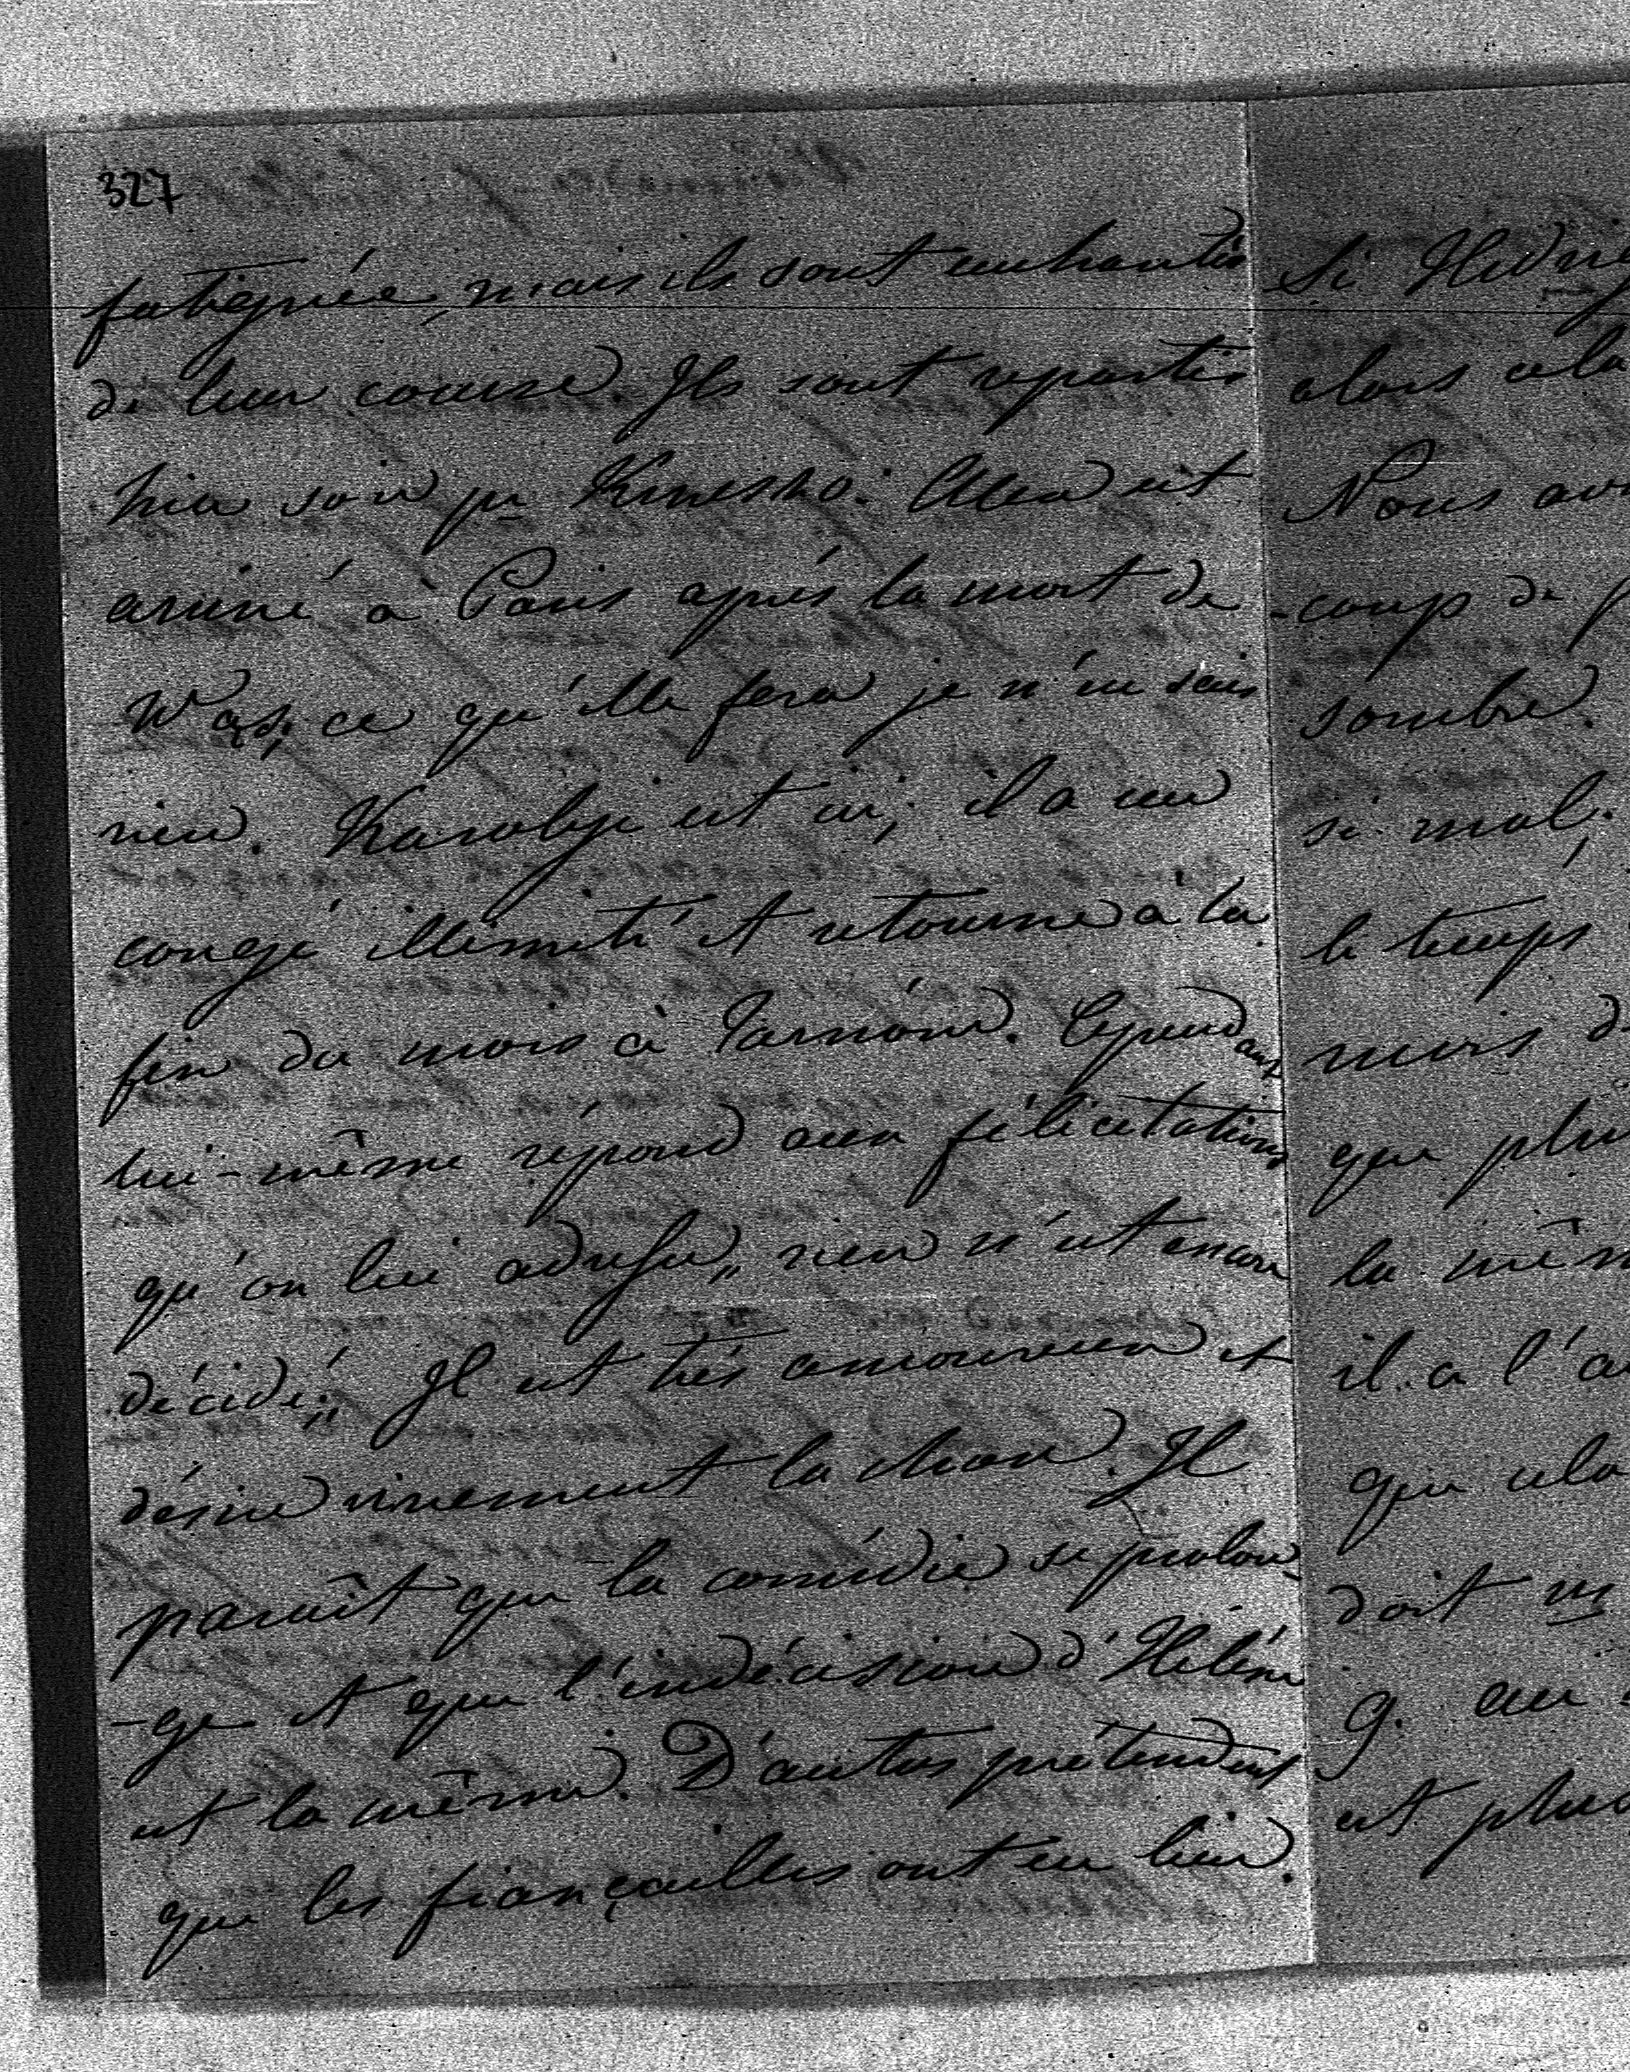 327
fatiguée, mais ils sont enchantés
de leur course. Ils sont repartis
hier soir pr Alex est
arrivé à Paris après la mort de
Was, ce qu'elle fera je n'en sais
rien. Karolyi est ici, il a un
congé illimité et retourne à la
fin du mois à Cependant
lui-même répond aux félicitations
qu'on lui adresse „rien n'est encore
décidé". Il est très amoureux et
désire vivement la chose. Il
paraît que la comédie se prolon-
-ge et que l'indécision d'Hélène
est la même. D'autres prétendent
que les fiançailles ont eu lieu.
Si
alors cela
Nous
-coup de
sombre.
si mal.
le temps
mois
que
la
il a l'
que cela
doit
g. au
est plus